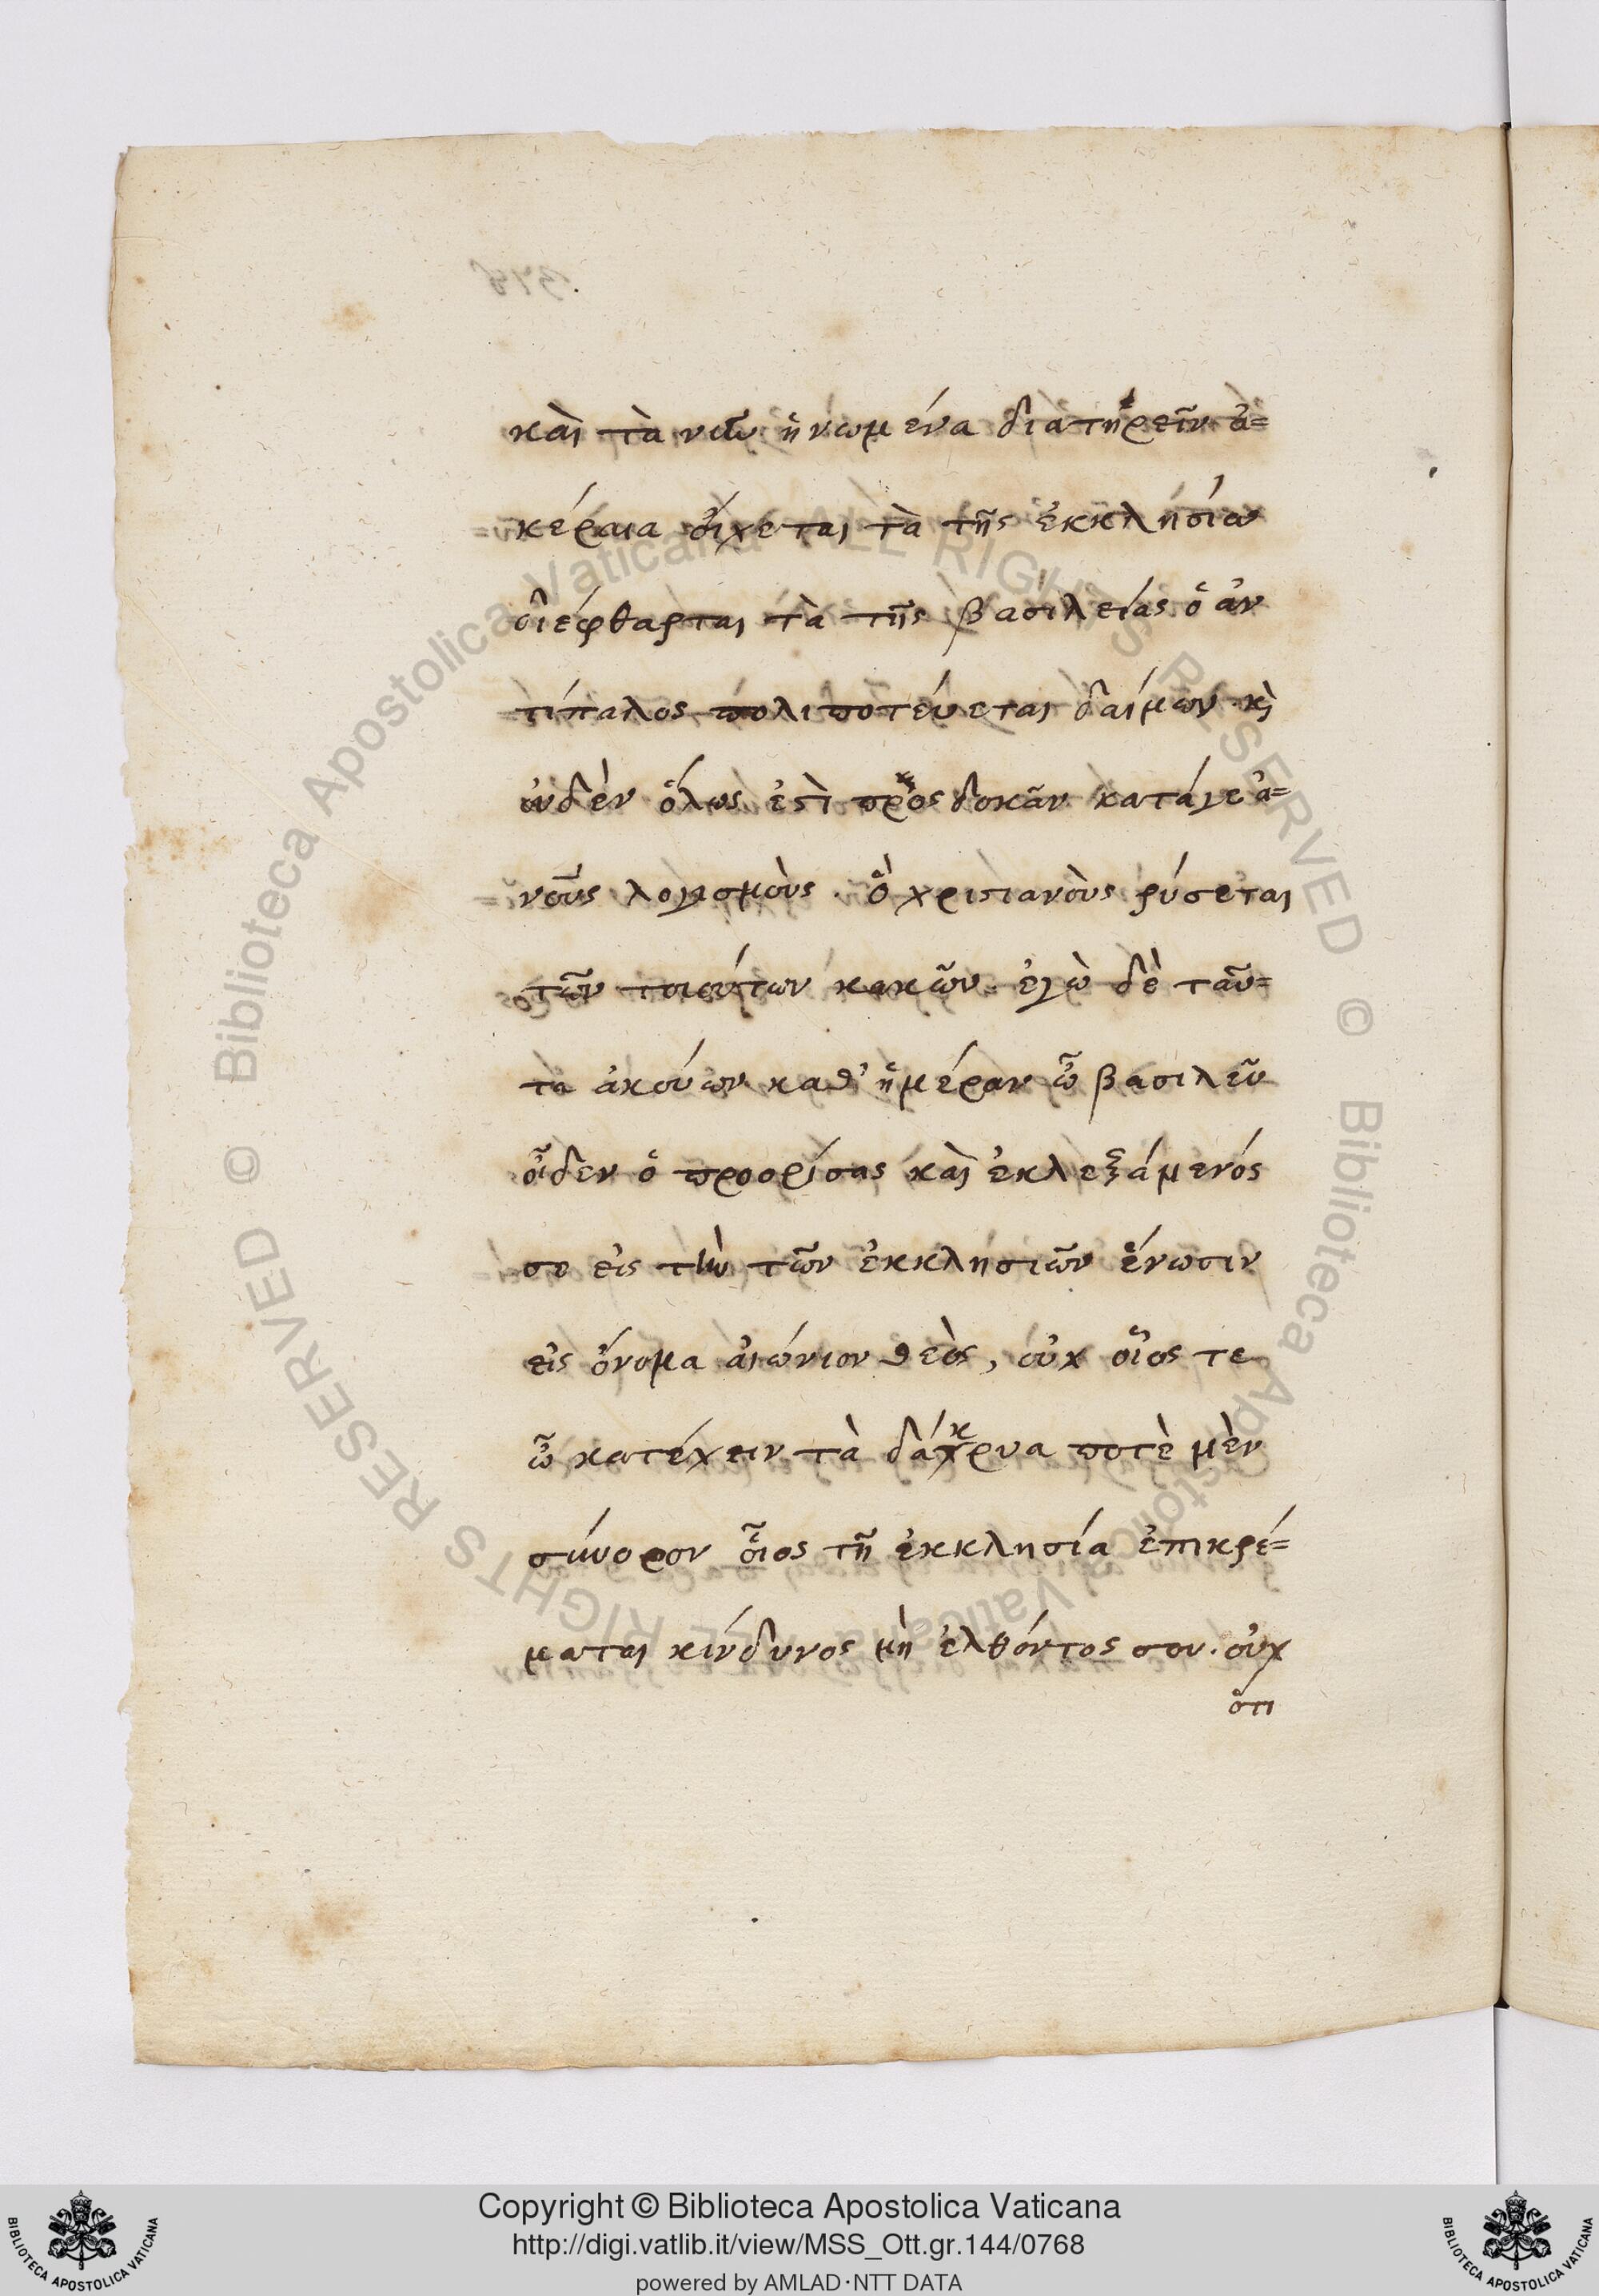 καὶ τὰ νῦν ἡνωμένα διατηρεῖν ἀ=
κέραια οἴχεται τὰ τῆς ἐκκλησίας
διέφθαρται τὰ τῆς βασιλείας ὁ ἀν
τίπαλος πολιποτεύεται δαίμων κὶ
οὐδὲν ὅλως ἐστὶ προσδοκᾶν κατάγε ἀ=
νοὺς λογισμοὺς. Ὁ χριστιανοὺς ῥύσεται
τῶν τοιούτων κακῶν. ἐγὼ δὲ ταῦ=
τα ἀκούων καθ' ἡμέραν ὦ βασιλεῦ
οἶδεν ὁ προορίσας καὶ ἐκλεξάμενός
σε εἰς τὴν τῶν ἐκκλησιῶν ἕνωσιν
εἰς ὄνομα αἰώνιον θεὸς, οὐχ οἷός τε
ὦ κατέχειν τὰ δάκρυα ποτὲ μὲν
σύνορον οἷος τῇ ἐκκλησία ἐπικρέ=
μαται κίνδυνος μὴ ἐλθόντος σου. οὐχ
ὅτι
Copyright © Biblioteca Apostolica Vaticana
http://digi.vatlib.it/view/MSS_Ott.gr.144/0768
powered by AMLAD·NTT DATA
BIBLIOTECA APOSTOLICA VATICANA
BIBLIOTECA APOSTOLICA VATICANA
© Biblioteca Apostolica Vaticana ALL RIGHTS RESERVED
© Biblioteca Apostolica Vaticana ALL RIGHTS RESERVED